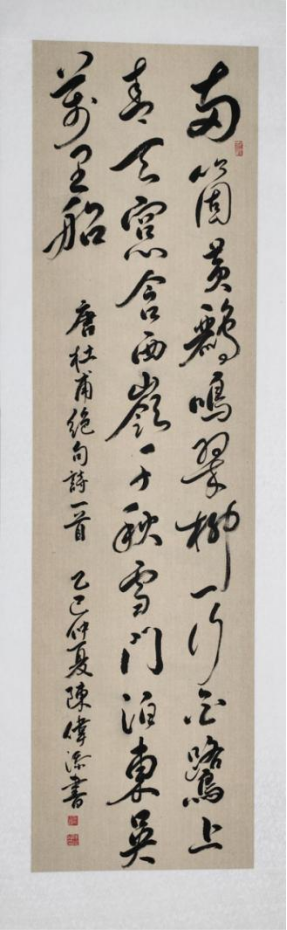 两箇黄鸝鳴翠柳一行白鷺上
青天窓含西嶺千秋雪門泊東吴
萬里船
唐杜甫絶句詩一首 乙巳仲夏陳偉書